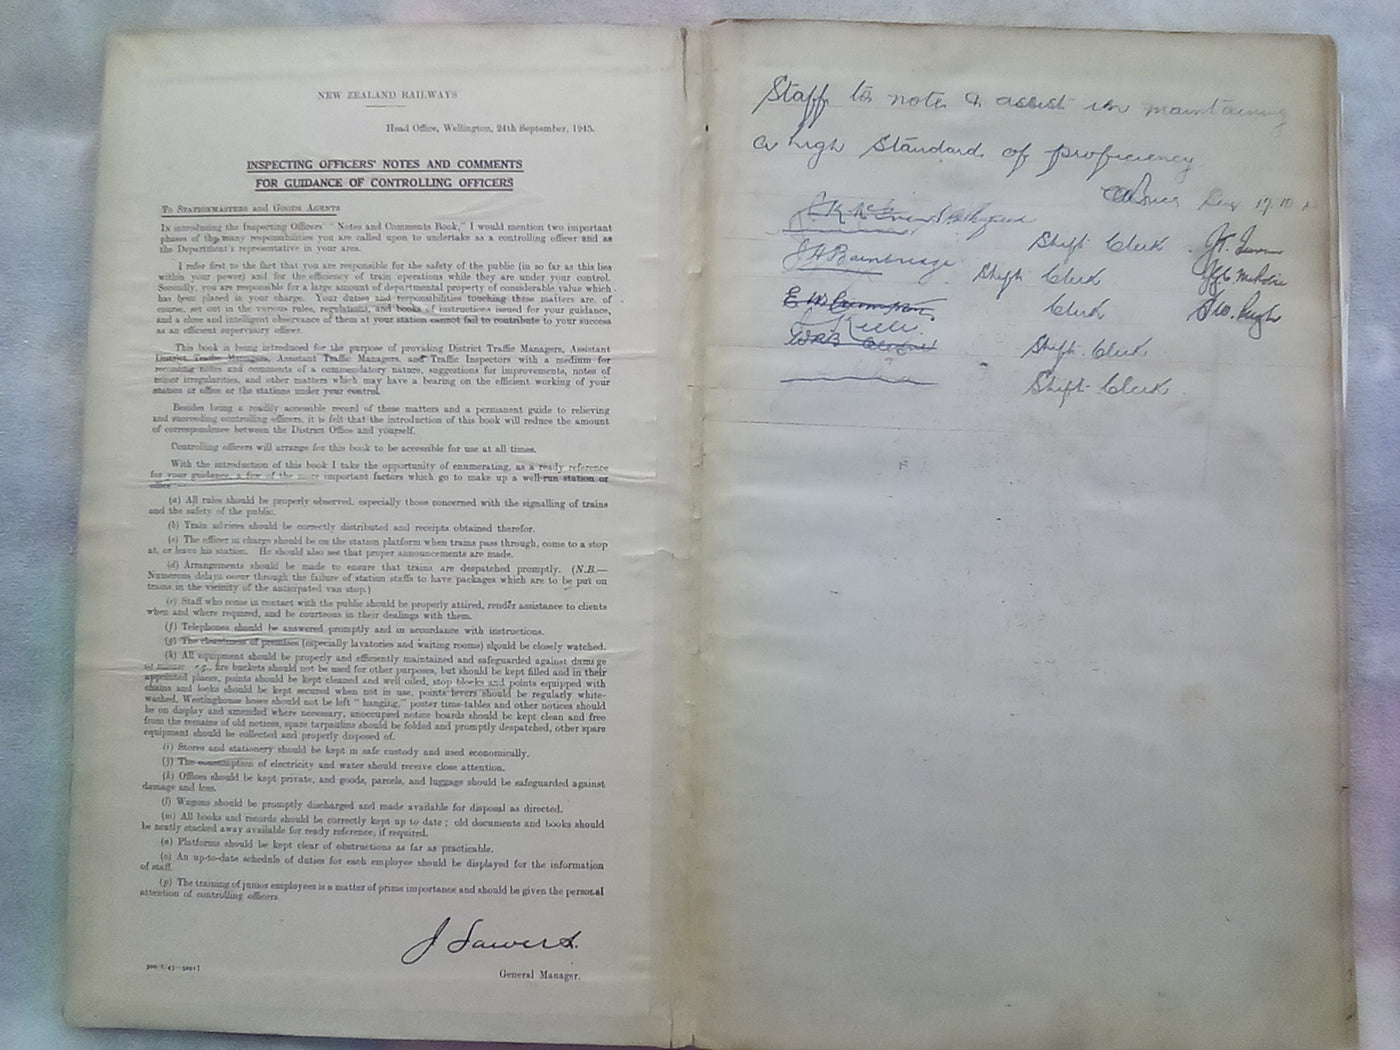 NEW ZEALAND RAILWAYS
Head Office, Wellington, 24th September, 1945.
INSPECTING OFFICERS' NOTES AND COMMENTS
FOR GUIDANCE OF CONTROLLING OFFICERS
To Stationmasters and Goods Agents
In introducing the Inspecting Officers' "Notes and Comments Book," I would mention two important
phases of the many responsibilities you are called upon to undertake as a controlling officer and as
the Department's representative in your area.
I refer first to the fact that you are responsible for the safety of the public (in so far as this lies
within your power) and for the efficiency of train operations while they are under your control.
Secondly, you are responsible for a large amount of departmental property of considerable value which
has been placed in your charge. Your duties and responsibilities touching these matters are, of
course, set out in the various rules, regulations, and books of instructions issued for your guidance,
and a close and intelligent observance of them at your station cannot fail to contribute to your success
as an efficient supervisory officer.
This book is being introduced for the purpose of providing District Traffic Managers, Assistant
District Traffic Managers, Assistant Traffic Managers, and Traffic Inspectors with a medium for
recording notes and comments of a commendatory nature, suggestions for improvements, notes of
minor irregularities, and other matters which may have a bearing on the efficient working of your
station or office or the stations under your control.
Besides being a readily accessible record of these matters and a permanent guide to relieving
and succeeding controlling officers, it is felt that the introduction of this book will reduce the amount
of correspondence between the District Office and yourself.
Controlling officers will arrange for this book to be accessible for use at all times.
With the introduction of this book I take the opportunity of enumerating, as a ready reference
for your guidance, a few of the more important factors which go to make up a well-run station or
office:—
(a) All rules should be properly observed, especially those concerned with the signalling of trains
and the safety of the public.
(b) Train advices should be correctly distributed and receipts obtained therefor.
(c) The officer in charge should be on the station platform when trains pass through, come to a stop
at, or leave his station. He should also see that proper announcements are made.
(d) Arrangements should be made to ensure that trains are despatched promptly. (N.B.—
Numerous delays occur through the failure of station staffs to have packages which are to be put on
trains in the vicinity of the anticipated van stop.)
(e) Staff who come in contact with the public should be properly attired, render assistance to clients
when and where required, and be courteous in their dealings with them.
(f) Telephones should be answered promptly and in accordance with instructions.
(g) The cleanliness of premises (especially lavatories and waiting rooms) should be closely watched.
(h) All equipment should be properly and efficiently maintained and safeguarded against damage
or misuse e.g., fire buckets should not be used for other purposes, but should be kept filled and in their
appointed places, points should be kept cleaned and well oiled, stop blocks and points equipped with
chains and locks should be kept secured when not in use, points levers should be regularly white-
washed, Westinghouse hoses should not be left "hanging," poster time-tables and other notices should
be on display and amended where necessary, unoccupied notice boards should be kept clean and free
from the remains of old notices, spare tarpaulins should be folded and promptly despatched, other spare
equipment should be collected and properly disposed of.
(i) Stores and stationery should be kept in safe custody and used economically.
(j) The consumption of electricity and water should receive close attention.
(k) Offices should be kept private, and goods, parcels, and luggage should be safeguarded against
damage and loss.
(l) Wagons should be promptly discharged and made available for disposal as directed.
(m) All books and records should be correctly kept up to date; old documents and books should
be neatly stacked away available for ready reference, if required.
(n) Platforms should be kept clear of obstructions as far as practicable.
(o) An up-to-date schedule of duties for each employee should be displayed for the information
of staff.
(p) The training of junior employees is a matter of prime importance and should be given the personal
attention of controlling officers.
J Sawers.
General Manager.
Staff to note & assist in maintaining
a high standard of proficiency
Shift Clerk
J H Bainbridge Shift Clerk
Clerk
Shift Clerk
Shift Clerk